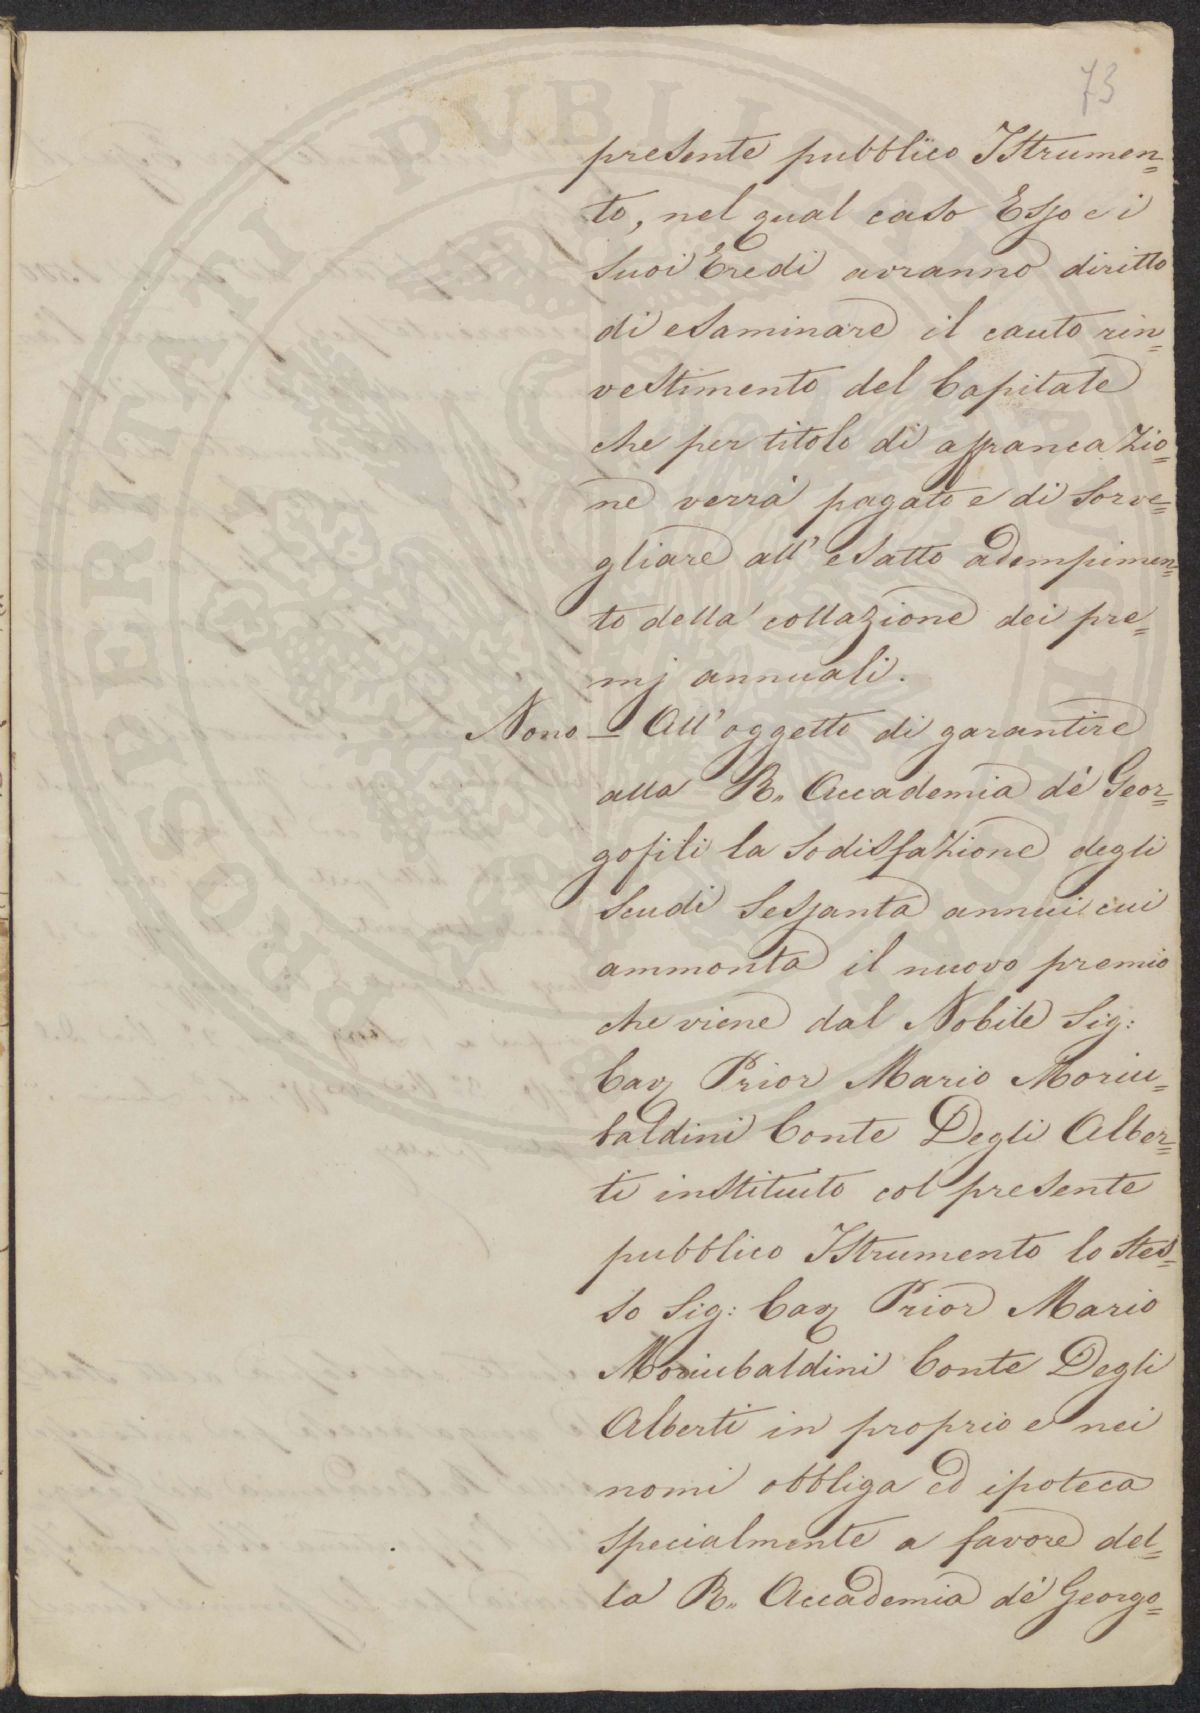 73
presente pubblico Istrumen=
to, nel qual caso Esso e i
suoi Eredi avranno diritto
di esaminare il cauto rin=
vestimento del Capitale
che per titolo di affrancazio=
ne verrà pagato e di sorve=
gliare all' esatto adempimen=
to della collazione dei pre=
mj annuali.
Nono — All' oggetto di garantire
alla R. Accademia de' Geor=
gofili la sodisfazione degli
scudi sessanta annui cui
ammonta il nuovo premio
che viene dal Nobile Sig:
Cav Prior Mario Moriu=
baldini Conte Degli Alber=
ti instituito col presente
pubblico Istrumento lo stes=
so Sig: Cav Prior Mario
Moriubaldini Conte Degli
Alberti in proprio e nei
nomi obbliga ed ipoteca
specialmente a favore del=
la R. Accademia de' Georgo=
PROSPERITATI PUBLICAE AUGENDAE